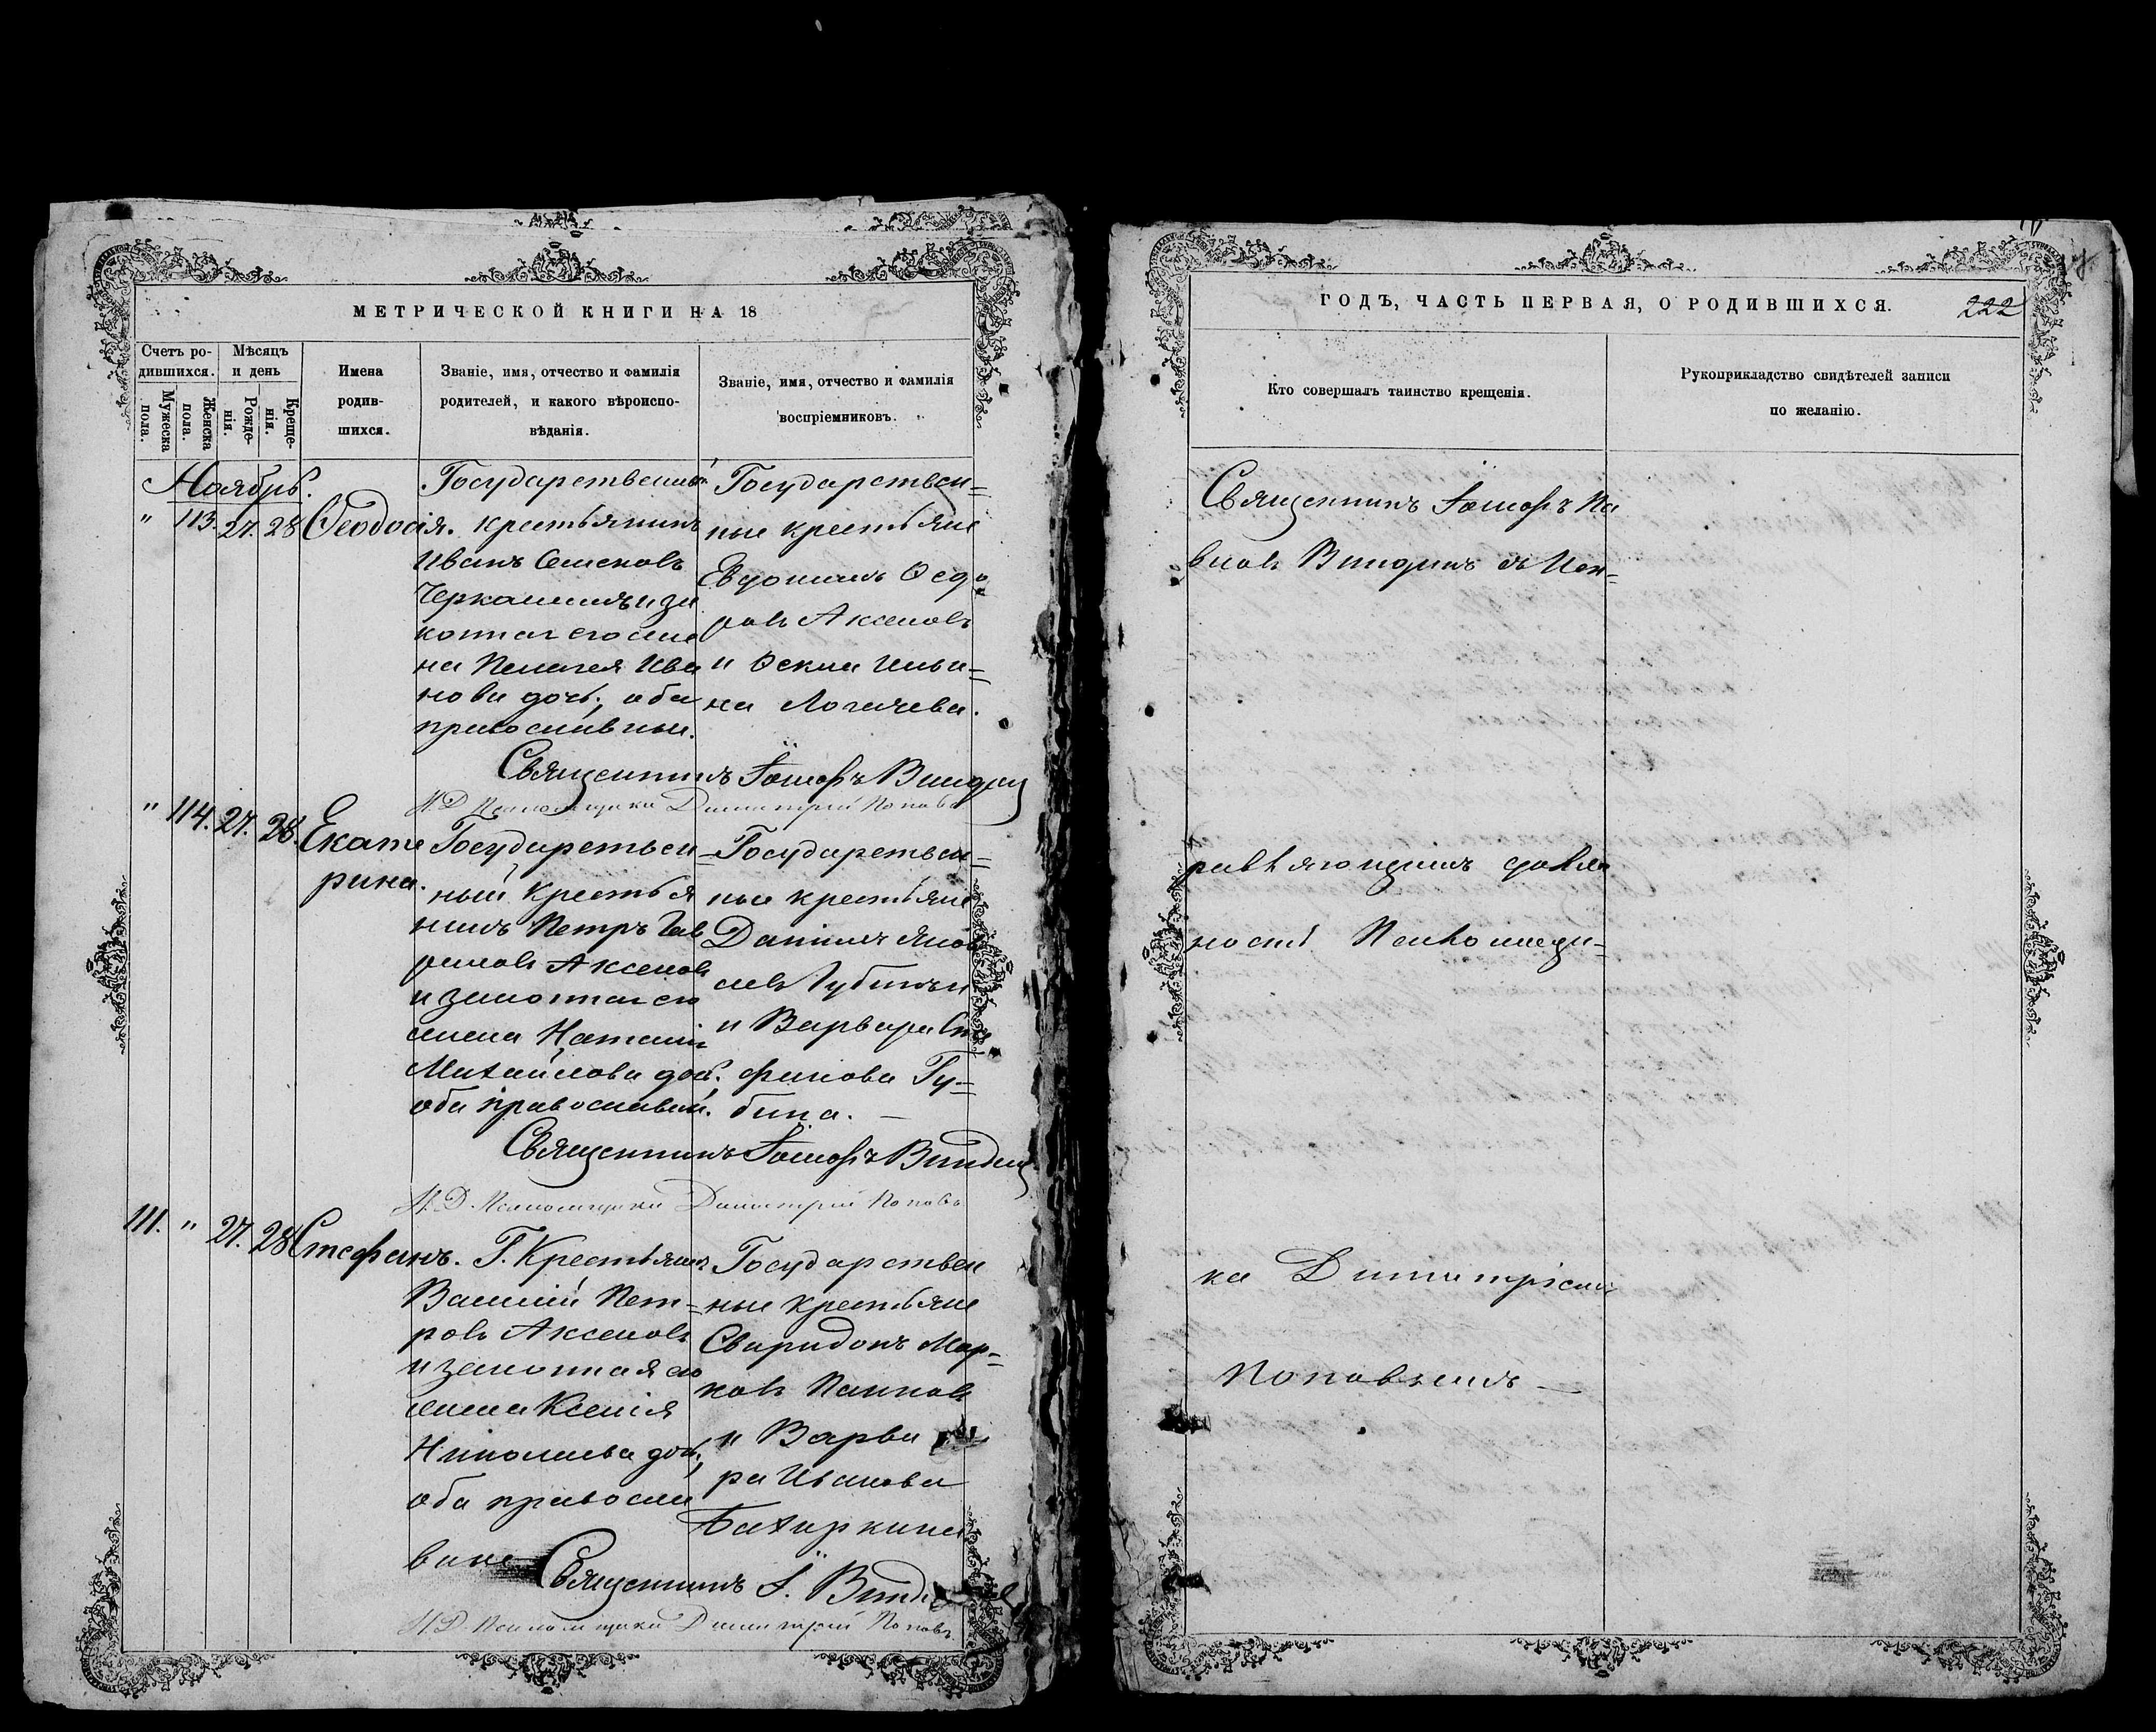 МЕТРИЧЕСКОЙ КНИГИ НА 18
Счетъ ро-
дившихся.
Мужеска
пола.
Женска
пола.
Мѣсяцъ
и день
Рожде-
нія.
Креще-
нія.
Имена
родив-
шихся.
Званіе, имя, отчество и фамилія
родителей, и какого вѣроиспо-
вѣданія.
Званіе, имя, отчество и фамилія
воспріемниковъ.
Ноябрь.
" 113. 27. 28 Ѳеодосія.
Государственный
крестьянинъ
Иванъ Семеновъ
Черкашинъ и за
конная его же
на Пелагея Ива
нова дочь, оба
православные.
Государствен=
ные крестьяне
Евдокимъ Ѳедо
ровъ Аксеновъ
и Ѳекла Ильи=
на Логачева.
Священникъ Іоасафъ Виндин
И. Д. Псаломщика Димитрій Поповъ
" 114. 27. 28. Екате
рина.
Государствен
ный крестья
нинъ Петръ Гав
риловъ Аксеновъ
и законная его
жена Наталія
Михайлова дочь,
оба православн.
Государствен=
ные крестьяне
Даніилъ Яков
левъ Губинъ
и Варвара Сте
фанова Гу=
бина. —
Священникъ Іоасафъ Виндин
И. Д. Псаломщика Димитрій Поповъ
111. " 27. 28 Стефанъ.
Г. Крестьянинъ
Василій Пет=
ровъ Аксеновъ
и законная его
жена Ксенія
Николаева дочь,
оба правосла
вные
Государствен
ные крестьяне
Свиридонъ Мар=
ковъ Панковъ
и Варва
ра Иванова
Батиркина
Священникъ І.
И. Д. Псаломщика Димитрій Поповъ.
ГОДЪ, ЧАСТЬ ПЕРВАЯ, О РОДИВШИХСЯ.
222
Кто совершалъ таинство крещенія.
Рукоприкладство свидѣтелей записи
по желанію.
Священникъ Іоасафъ Па
вловъ Виндинъ съ Исп=
равляющимъ должн
ность Псаломщи=
ка Димитріемъ
Поповымъ —